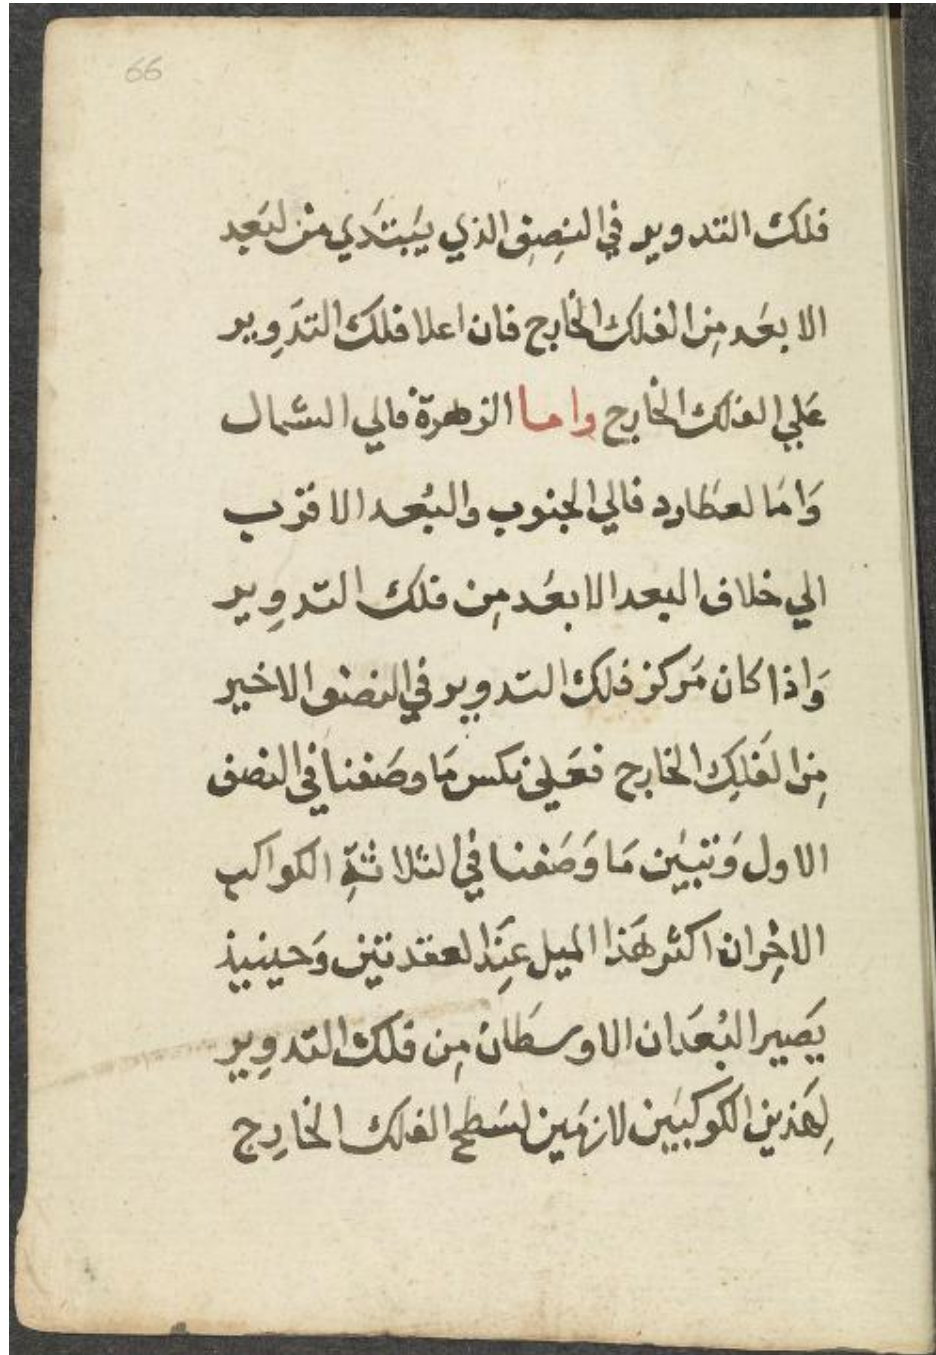 66
فلك التدوير في النِصِف الذي يَبتَدي من لبَعِد
الابعَد مِن الفلك الخارج فان اعلا فلك التدَوِير
عَلي الفلك الخارج واما الزهرة فالي الشمال
وَامَا لعطارد فالي الجنوب والبُعد الاقرب
الي خلاف البعد الابعُد مِن فلك التدوِير
وَاذا كان مَركز فلك التدوير في النصف الاخير
مِن الفَلِك الخارج فعَلي نكس مَا وصَفنا في النصف
الاول وَنتبيَن مَا وَصَفنا في الثلاثةِ الكواكب
الاخِران اكثر هَذا الميل عِندَ العقدتين وَحينيذ
يَصير البُعَدان الاوسَطان مِن فلك التدوِير
لِهَذين الكوكبَين لازمَين لسَطح الفلك الخارِج